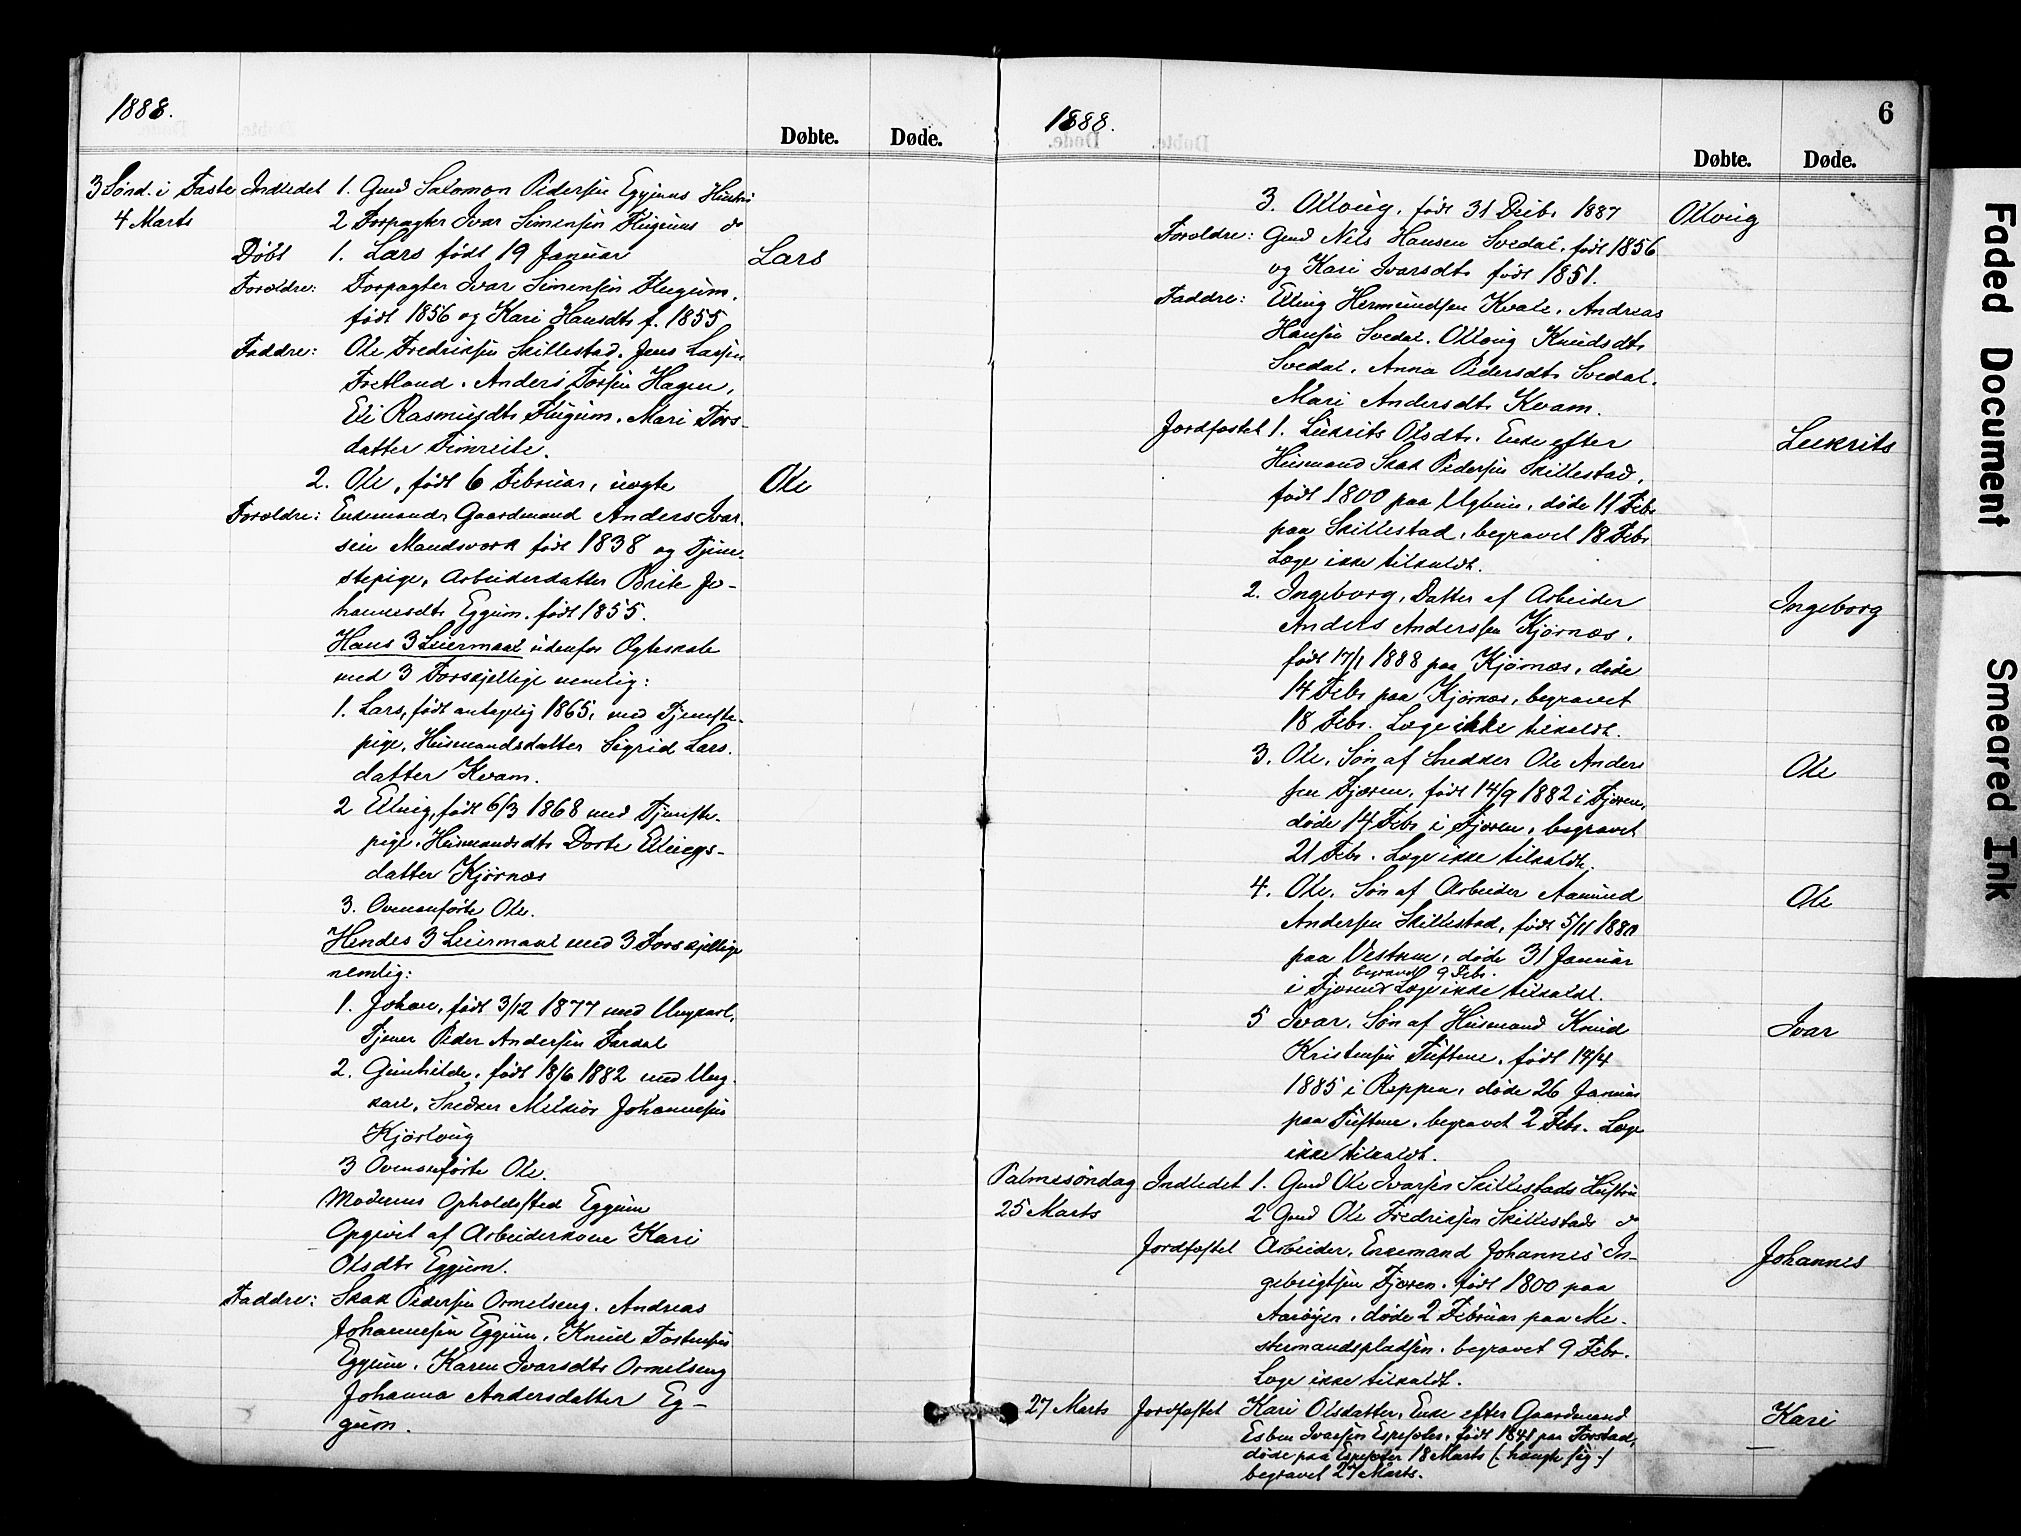 1888.
Døbte. Døde.
3 Sønd. i Faste Indledet 1. Gmd Salomon Pedersen Eggums Hustru
4 Marts 2 Forpagter Ivar Simensen Flugums do
Døbt 1. Lars født 19 Januar Lars
Forældre: Forpagter Ivar Simensen Flugum,
født 1856 og Kari Hansdtr f. 1855
Faddre: Ole Fredriksen Skillestad. Jens Lassen
Fretland. Anders Torsen Hagen,
Eli Rasmusdtr Flugum. Mari Tors-
datter Timreite.
2. Ole, født 6 Februar, uægte Ole
Forældre: Enkemand Gaardmand Anders Ivar-
sen Mundsvork født 1838 og Tjene-
stepige, Arbeiderdatter Brite Jo-
hannesdtr Eggum, født 1855.
Hans 3 Leiermaal udenfor Ægteskab
med 3 Forskjellige nemlig:
1. Lars, født antagelig 1865, med Tjeneste-
pige, Husmandsdatter Sigrid Lars-
datter Kvam.
2 Elling, født 6/3 1868 med Tjeneste-
pige. Husmandsdtr Dorte Ellings-
datter Kjørnæs
3. Ovenanførte Ole.
Hendes 3 Leiermaal med 3 Forskjellige
nemlig:
1. Johan, født 3/12 1877 med Ungkarl,
Tjener Peder Andersen Fardal
2. Gunhilde, født 18/6 1882 med Ung-
karl, Snedker Melkior Johannesen
Kjørlaug
3 Ovenanførte Ole.
Moderens Opholdssted Eggum
Opgivet af Arbeiderkone Kari
Olsdtr Eggum.
Faddre: Skak Pedersen Ormelseng. Andreas
Johannesen Eggum, Knud Torstensen
Eggum. Karen Ivarsdtr Ormelseng
Johanna Andersdatter Eg-
gum.
1888. 6
Døbte. Døde.
3. Ollvug, født 31 Decbr 1887 Ollvug
Forældre: Gmd Nils Hansen Svedal, født 1856
og Kari Ivarsdtr født 1851.
Faddre: Elling Hermundsen Kvale, Andreas
Hansen Svedal. Ollvug Knudsdtr
Svedal, Anna Pedersdtr Svedal.
Mari Andersdtr Kvam.
Jordfæstet 1. Lukrits Olsdtr. Enke efter Lukrits
Husmand Skak Pedersen Skillestad,
født 1800 paa Ugheim, døde 11 Febr
paa Skillestad, begravet 18 Febr
Læge ikke tilkaldt.
2. Ingeborg, Datter af Arbeider Ingeborg
Anders Anderssen Kjørnæs,
født 17/1 1888 paa Kjørnæs, døde
14 Febr paa Kjørnæs, begravet
18 Febr. Læge ikke tilkaldt.
3. Ole, Søn af Snedker Ole Ander- Ole
sen Fjæren, født 14/9 1882 i Fjæren,
døde 14 Febr i Fjæren, begravet
21 Febr. Læge ikke tilkaldt.
4. Ole. Søn af Arbeider Aamund Ole
Andersen Skillestad, født 5/11 1880
paa Vestrem, døde 31 Januar
begravet 9 Febr.
i Fjæren. Læge ikke tilkaldt.
5 Ivar, Søn af Husmand Knud Ivar
Kristensen Tuftene, født 19/4
1885 i Reppen, døde 26 Januar
paa Tuftene, begravet 2 Febr. Læge
ikke tilkaldt.
Palmesøndag Indledet 1. Gmd Ole Ivarsen Skillestads Hustru
25 Marts 2 Gmd Ole Fredriksen Skillestads do
Jordfæstet Arbeider, Enkemand Johannes In- Johannes
gebrigtsen Fjæren, født 1800 paa
Aarøyen, døde 2 Februar paa Me-
stermandspladsen, begravet 9 Febr.
Læge ikke tilkaldt.
27 Marts Jordfæstet Kari Olsdatter, Enke efter Gaardmand Kari
Esben Ivarsen Espesæter, født 1841 paa Torstad,
døde paa Espesæter 18 Marts (: hængte sig :)
begravet 27 Marts.
Faded Document
Smeared Ink